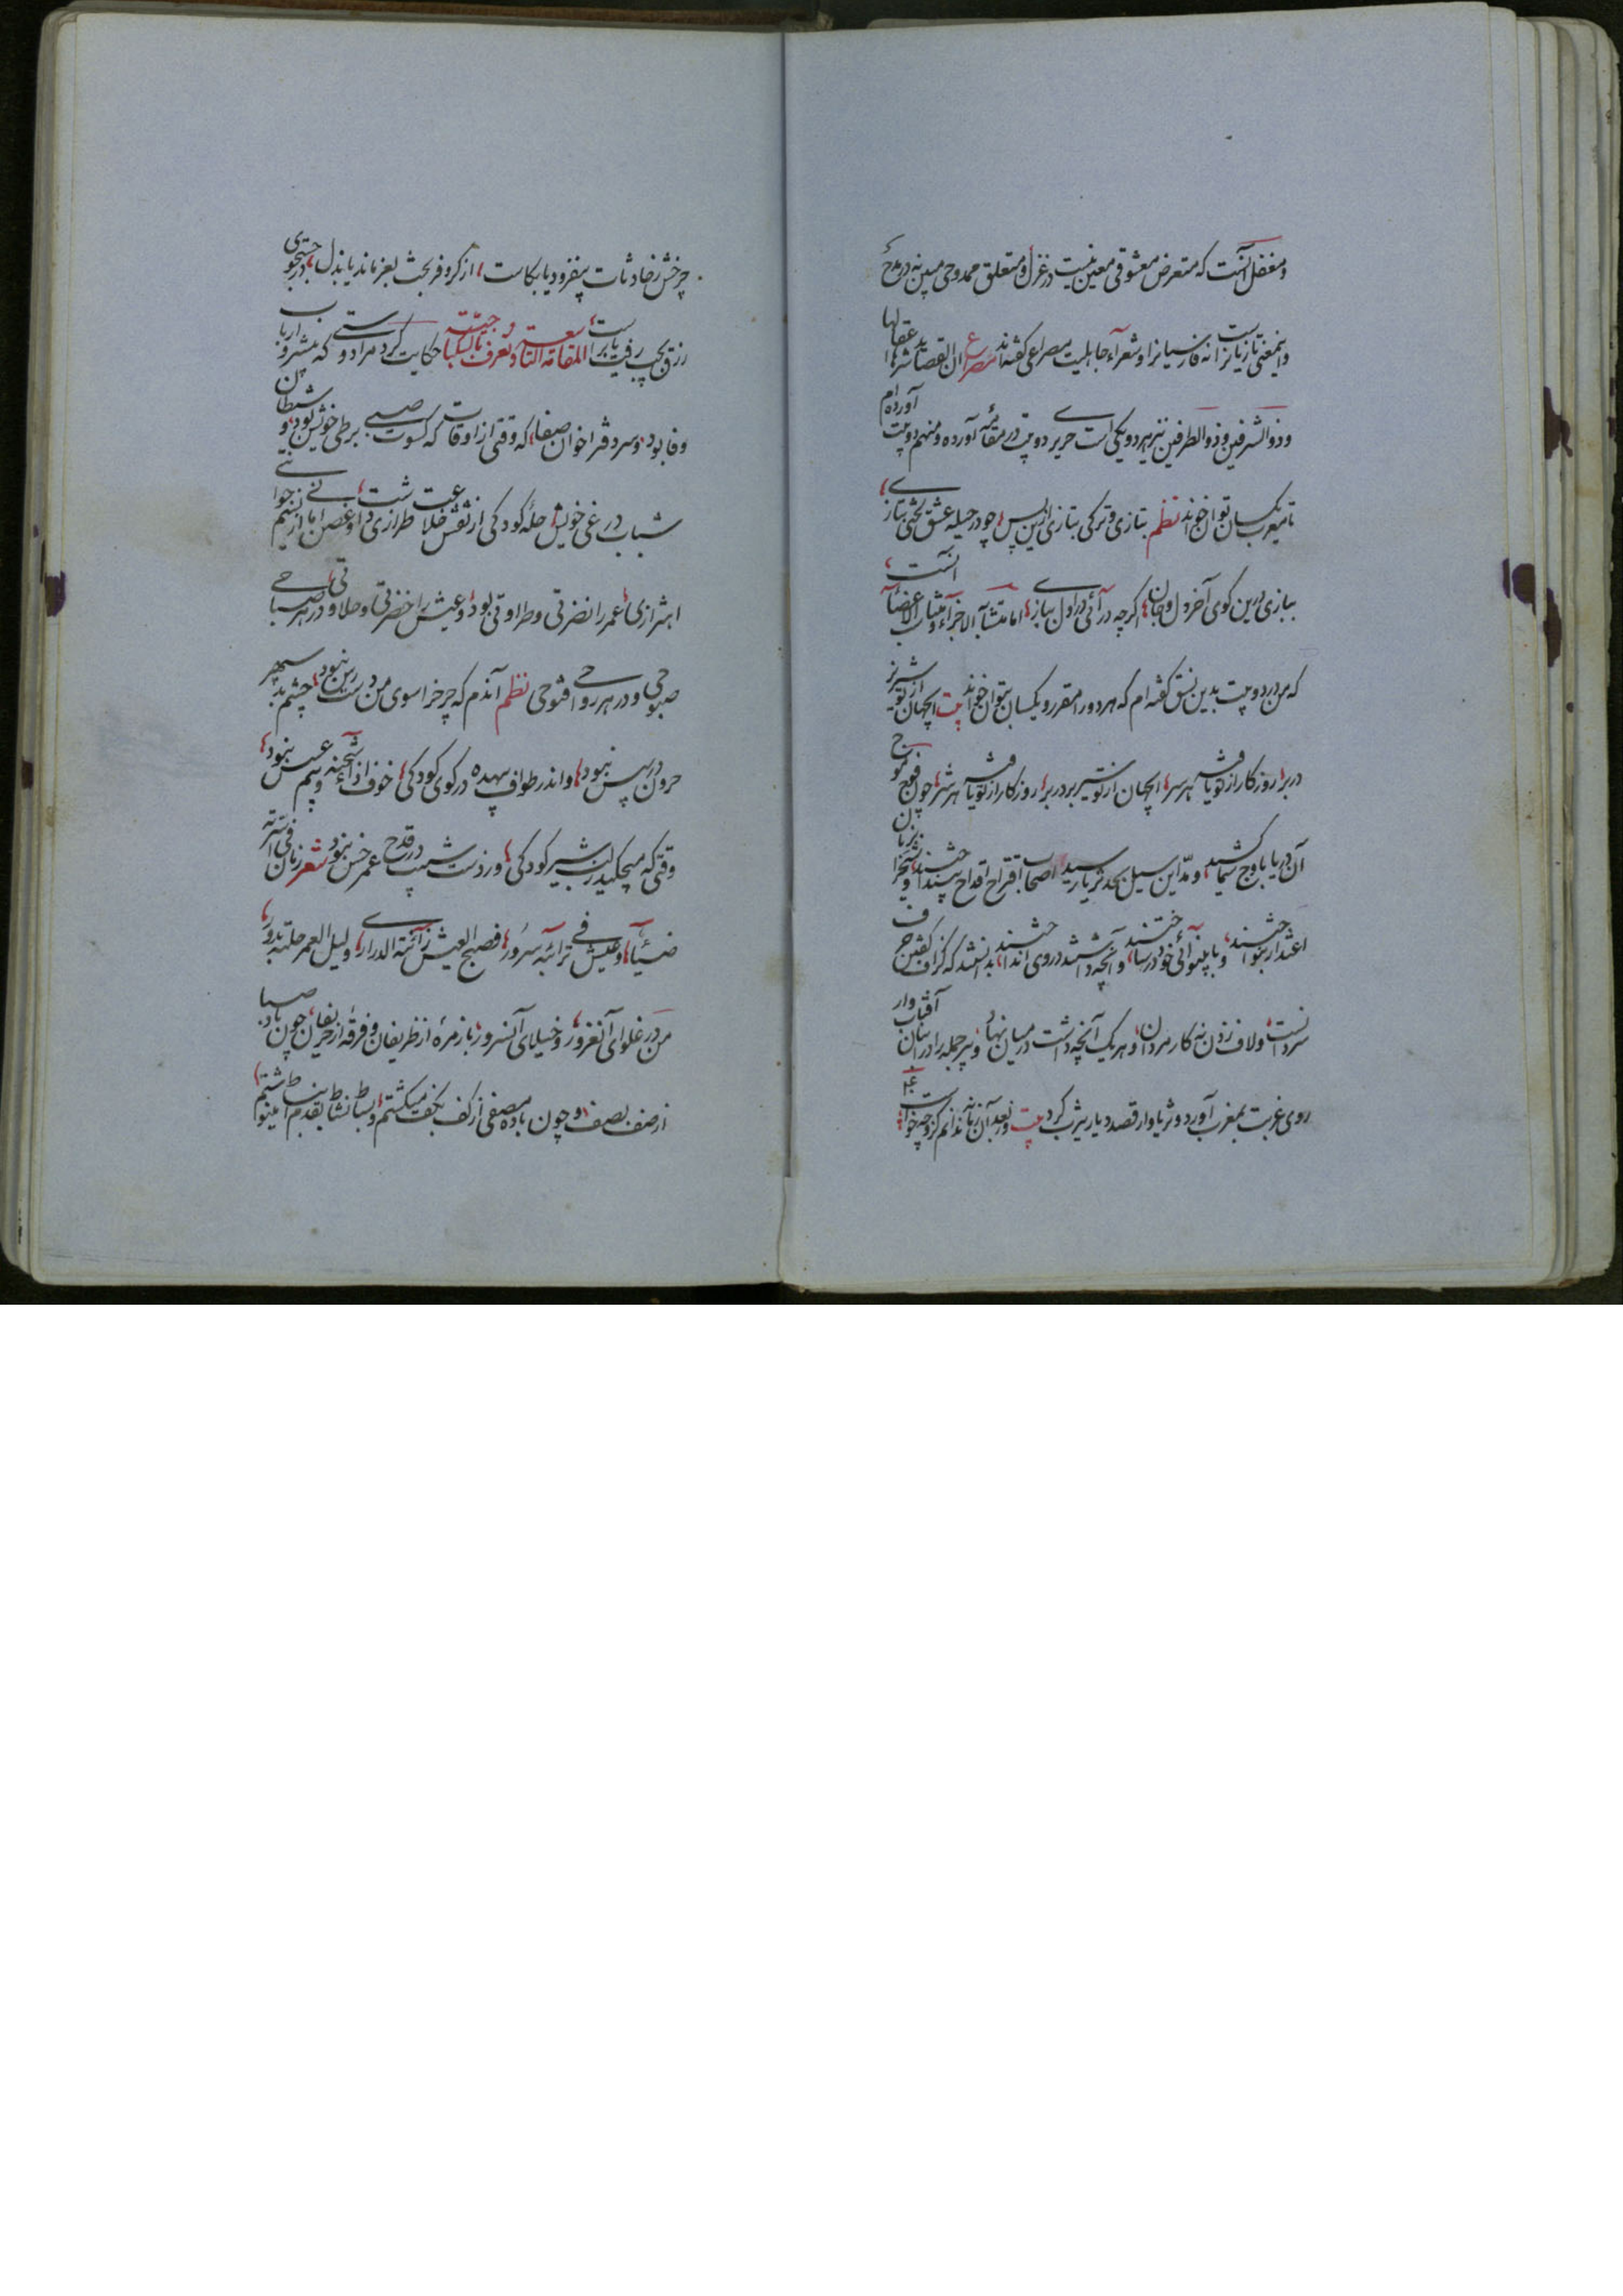 و مغفل آنست که متعرض معشوقی معین نیست در غزل و متعلق ممدوحی مبین نه در مدح
و اینمعنی تازیانراست نه فارسیانرا و شعرآء جاهلیت مصراعی گفته‌اند مصرع ان القصائد شرها اغفالها
و ذو الشرفین و ذو الطرفین نیز هر دو یکی است حریری دو بیت در مقامه آورده و منهم دو بیت آورده‌ام
یکسان توان خواند نظم بتازی و ترکی بتازی ازین پس چو در حیله عشق لختی بتازی
ببازی درین کوی آخر دل و جان اگرچه در آئی در اول ببازی اما متشابه الاجزآء و متشابه الاعضآء آنست
که من در دو بیت بدین نسق گفته‌ام که هر دو را مقرر و یکسان بتوان خواند بیت ایجهان از تو
در بر روزگار از تو یافته هر سر ایجهان از تو بر در بر روزگار از تو یافته هر شر چون موج
آن دریا باوج سما کشید و مد این سیل بحد ثریا رسید اصحاب اقتراح اقداح
اعتذار بنواختند و با بینوائی خود در ساختند و آنچه داشتند در وی انداختند بدانستند که گزاف گفتن
سرد است و لاف زدن نه کار مرد و هر یک آنچه داشت در میان نهاد و پیر جمله را در انبان آفتاب وار
روی غربت بمغرب آورد و ثریا وار قصد دیار یثرب کرد بیت و بعد آن زمانه ندانم کزو چه خواست
چرخش ز حادثات بیفزود یا بکاست از کر و فر بخت بعز ماند یا بذل در جستجوی
رزق بچپ رفت یا براست المقامة التاسعة و تعرف بالسکباجیة حکایت کرد مرا دوستی که پیشرو ارباب
وفا بود و سردفتر اخوان صفا که وقتی از اوقات که کسوت صبی بر طی خویش بود و شیطان
شباب در غی خویش حله کودکی از نقش خلاعت طرازی داشت و غصن جوانی از نسیم
اهتزازی عمر را نضرتی و طراوتی بود و عیش را خضرتی و حلاوتی در هر صباحی
صبوحی و در هر رواحی فتوحی نظم آندم که چرخ را سوی من دسترس نبود چشم بد سپهر
حرون در پس نبود و اندر طواف بیهده در کوی کودکی خوف از شحنه و بیم عسس نبود
وقتی که میچکید ز لب شیر کودکی ور دست شیب در قدح عمر خس نبود شعر زمان فی اسرته
ضیآء و عیش فی ترائبه سرور فصبح العیش زآئنة الدراری و لیل العمر حلته بدور
من در غلوای آنغرور و خیلای آنسرور با زمره از ظریفان و فرقه از حریفان چون باد صبا
از صف بصف و چون باده مصفی از کف بکف میگشتم و بساط نشاط بقدم انبساط